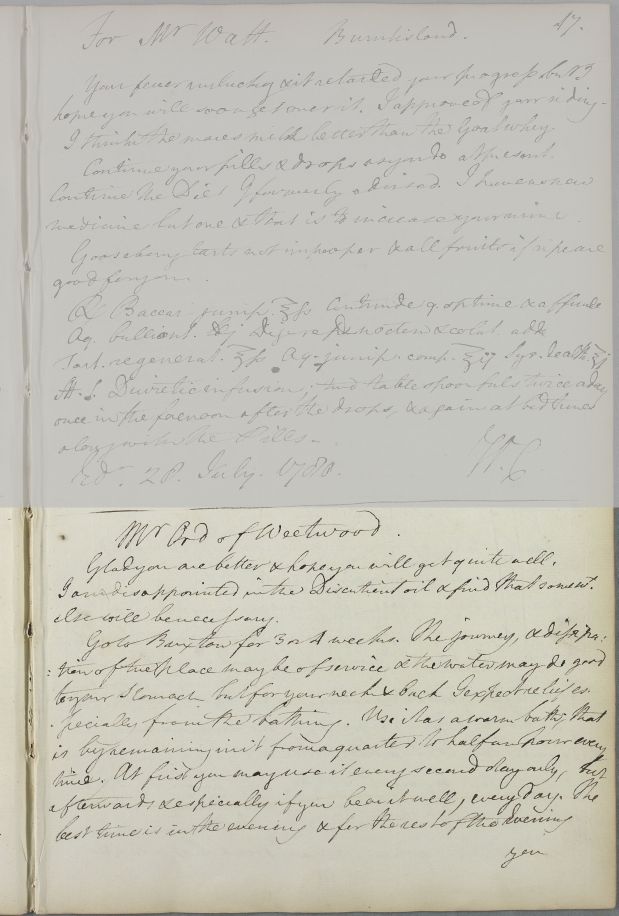 For Mr Watt. Burntisland. 47.
Your fever unlucky & it retarded your progress but I
hope you will soon get over it. I approve of your riding.
I think the mares milk better than the Goat whey.
Continue your pills & drops as you do at present.
Continue the Diet I formerly advised. I have no new
medicine but one & that is to increase your urine.
Gooseberry tarts not improper & all fruits if ripe are
good for you.
℞ Baccar. junip. ℥ſs Contunde q. optime & affunde
Aq. bullient. ℔j Digere per noctem & colat. adde
Tart. regenerat. ℥ſs Aq. junip. comp. ℥ij Syr. ℥j
St. Diuretic infusion, table spoonfuls twice a day
once in the forenoon after the drops, & again at bed time
along with the Pills.
Edr. 28 July. 1780. W.C.
Mr Ord of Weetwood.
Glad you are better & hope you will get quite well.
I am disappointed in the Discutient oil & find that somewt.
else will be necessary.
Go to Buxton for 3 or 4 weeks. The journey, & dissipa:
:tion of the place may be of service & the water may do good
to your Stomach but for your neck & back I expect relief es
:pecially from the bathing. Use it as a warm bath, that
is by remaining in it from a quarter to half an hour every
time. At first you may use it every second day only, but
afterwards & especially if you bear it well, every day. The
best time is in the evening & for the rest of the Evening
you